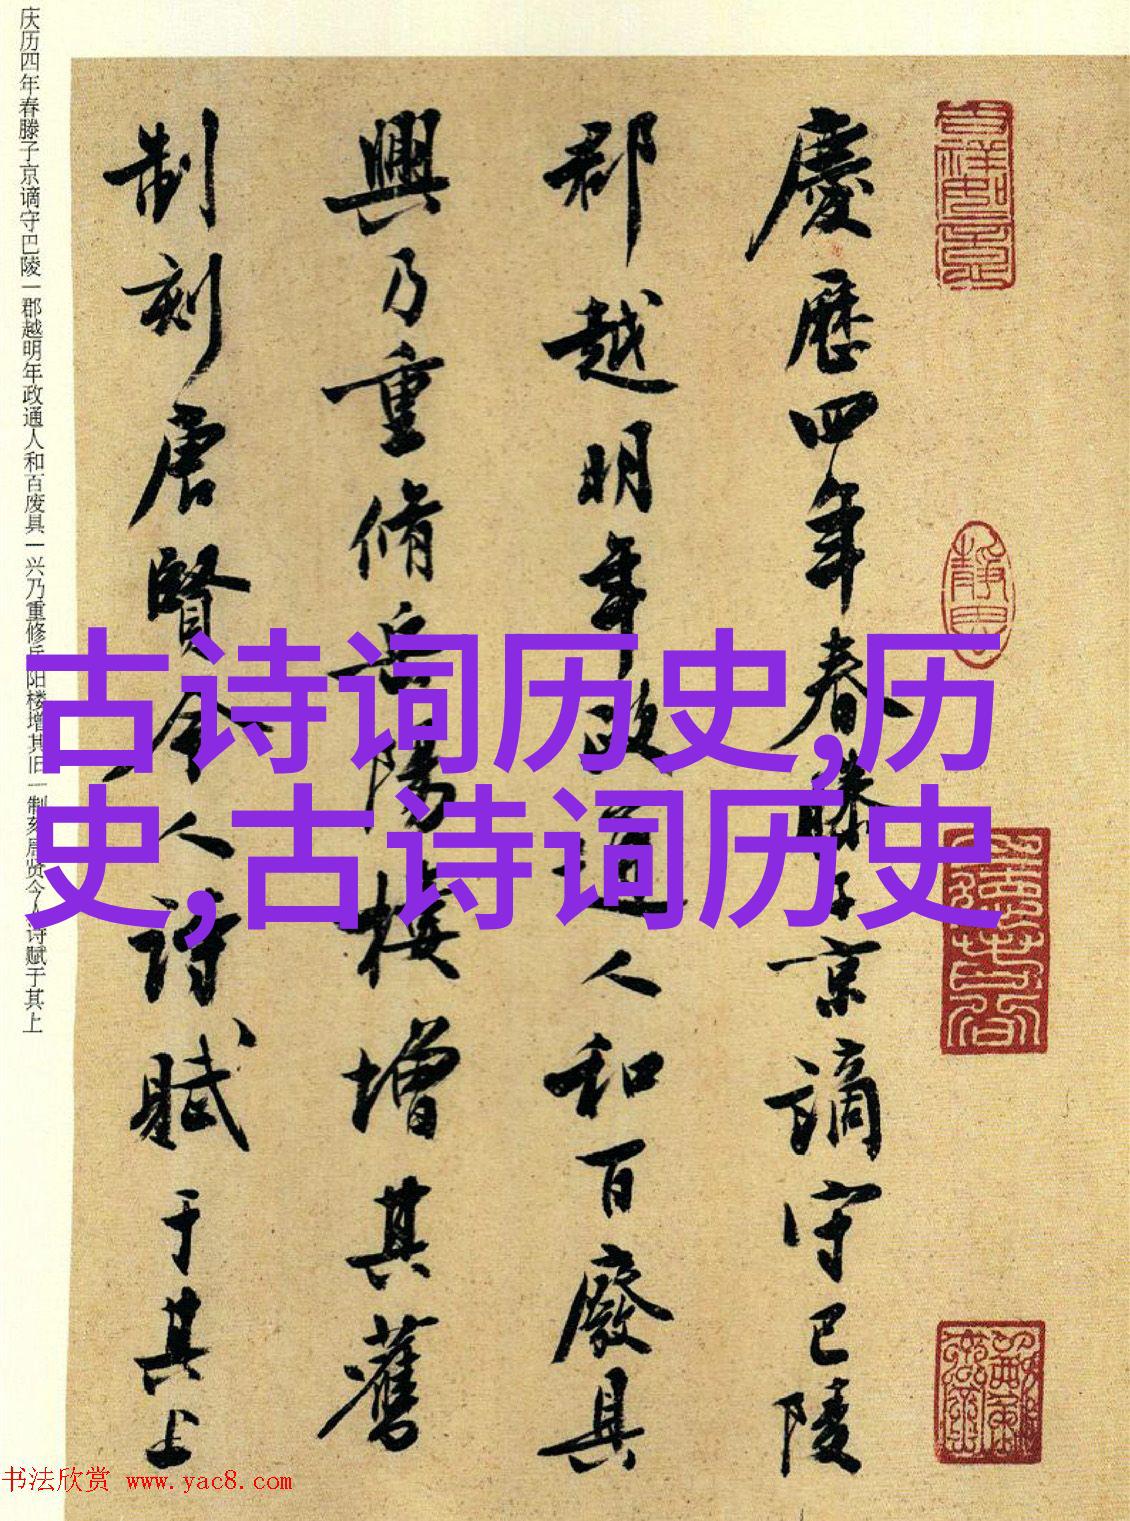 慶歷四年春滕子京謫守巴陵
郡越明年政通人和百廢具
興乃重脩岳陽樓增其舊
制刻唐賢令人詩賦于其上
庆历四年春滕子京谪守巴陵一郡越明年政通人和百废具一兴乃重修岳阳楼增其旧一制刻唐贤今人诗赋于其上
古诗词历史,历
史,古诗词历史
书法欣赏 www.yac8.com